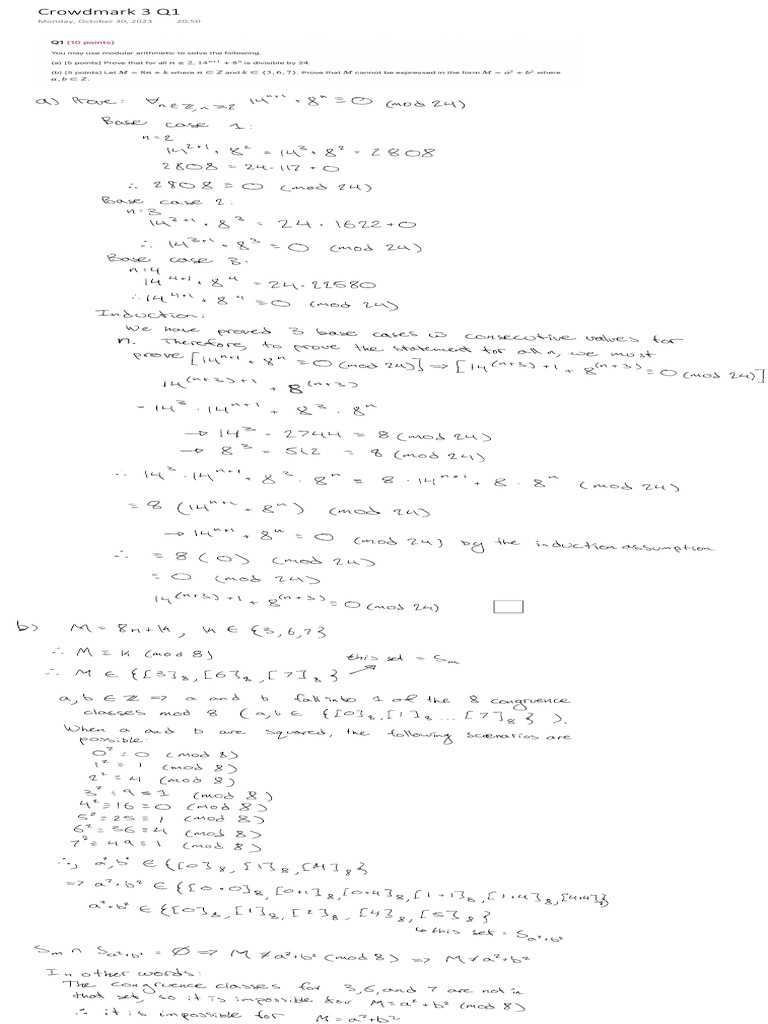 Crowdmark 3 Q1
Monday, October 30, 2023 20:50
Q1 (10 points)
You may use modular arithmetic to solve the following.
(a) [5 points] Prove that for all n ≥ 2, 14ⁿ⁺¹ + 8ⁿ is divisible by 24.
(b) [5 points] Let M = 8n + k where n ∈ ℤ and k ∈ {3, 6, 7}. Prove that M cannot be expressed in the form M = a² + b² where
a, b ∈ ℤ.
a) Prove: ∀n∈ℤ, n≥2 14ⁿ⁺¹ + 8ⁿ ≡ 0 (mod 24)
Base case 1:
n=2
14²⁺¹ + 8² = 14³ + 8² = 2808
2808 = 24·117 + 0
∴ 2808 ≡ 0 (mod 24)
Base case 2.
n=3
14³⁺¹ + 8³ = 24 · 1622 + 0
∴ 14³⁺¹ + 8³ ≡ 0 (mod 24)
Base case 3.
n=4
14⁴⁺¹ + 8⁴ = 24·22580
∴ 14⁴⁺¹ + 8⁴ ≡ 0 (mod 24)
Induction:
We have proved 3 base cases w consecutive values for
n. Therefore, to prove the statement for all n, we must
prove [14ⁿ⁺¹ + 8ⁿ ≡ 0 (mod 24)] ⇒ [14⁽ⁿ⁺³⁾⁺¹ + 8⁽ⁿ⁺³⁾ ≡ 0 (mod 24)]
14⁽ⁿ⁺³⁾⁺¹ + 8⁽ⁿ⁺³⁾
= 14³ · 14ⁿ⁺¹ + 8³ · 8ⁿ
→ 14³ = 2744 ≡ 8 (mod 24)
→ 8³ = 512 ≡ 8 (mod 24)
∴ 14³ · 14ⁿ⁺¹ + 8³ · 8ⁿ ≡ 8 · 14ⁿ⁺¹ + 8 · 8ⁿ (mod 24)
≡ 8 (14ⁿ⁺¹ + 8ⁿ) (mod 24)
→ 14ⁿ⁺¹ + 8ⁿ ≡ 0 (mod 24) by the induction assumption
∴ ≡ 8(0) (mod 24)
≡ 0 (mod 24)
14⁽ⁿ⁺³⁾⁺¹ + 8⁽ⁿ⁺³⁾ ≡ 0 (mod 24)
b) M = 8n+k, k ∈ {3,6,7}
∴ M ≡ k (mod 8)
this set = Sₘ
∴ M ∈ {[3]₈, [6]₈, [7]₈}
a, b ∈ ℤ ⇒ a and b fall into 1 of the 8 congruence
classes mod 8 (a, b ∈ {[0]₈, [1]₈ ... [7]₈}).
When a and b are squared, the following scenarios are
possible:
0² ≡ 0 (mod 8)
1² ≡ 1 (mod 8)
2² ≡ 4 (mod 8)
3² ≡ 9 ≡ 1 (mod 8)
4² ≡ 16 ≡ 0 (mod 8)
5² ≡ 25 ≡ 1 (mod 8)
6² ≡ 36 ≡ 4 (mod 8)
7² ≡ 49 ≡ 1 (mod 8)
∴, a², b² ∈ {[0]₈, [1]₈, [4]₈}
⇒ a²+b² ∈ {[0+0]₈, [0+1]₈, [0+4]₈, [1+1]₈, [1+4]₈, [4+4]₈}
a²+b² ∈ {[0]₈, [1]₈, [2]₈, [4]₈, [5]₈}
↳ this set = Sₐ²₊b²
Sₘ ∩ Sₐ²₊b² = ∅ ⇒ M ≢ a²+b² (mod 8) ⇒ M ≠ a²+b²
In other words:
The congruence classes for 3, 6, and 7 are not in
that set, so it is impossible for M ≡ a² + b² (mod 8)
∴ it is impossible for M = a²+b²